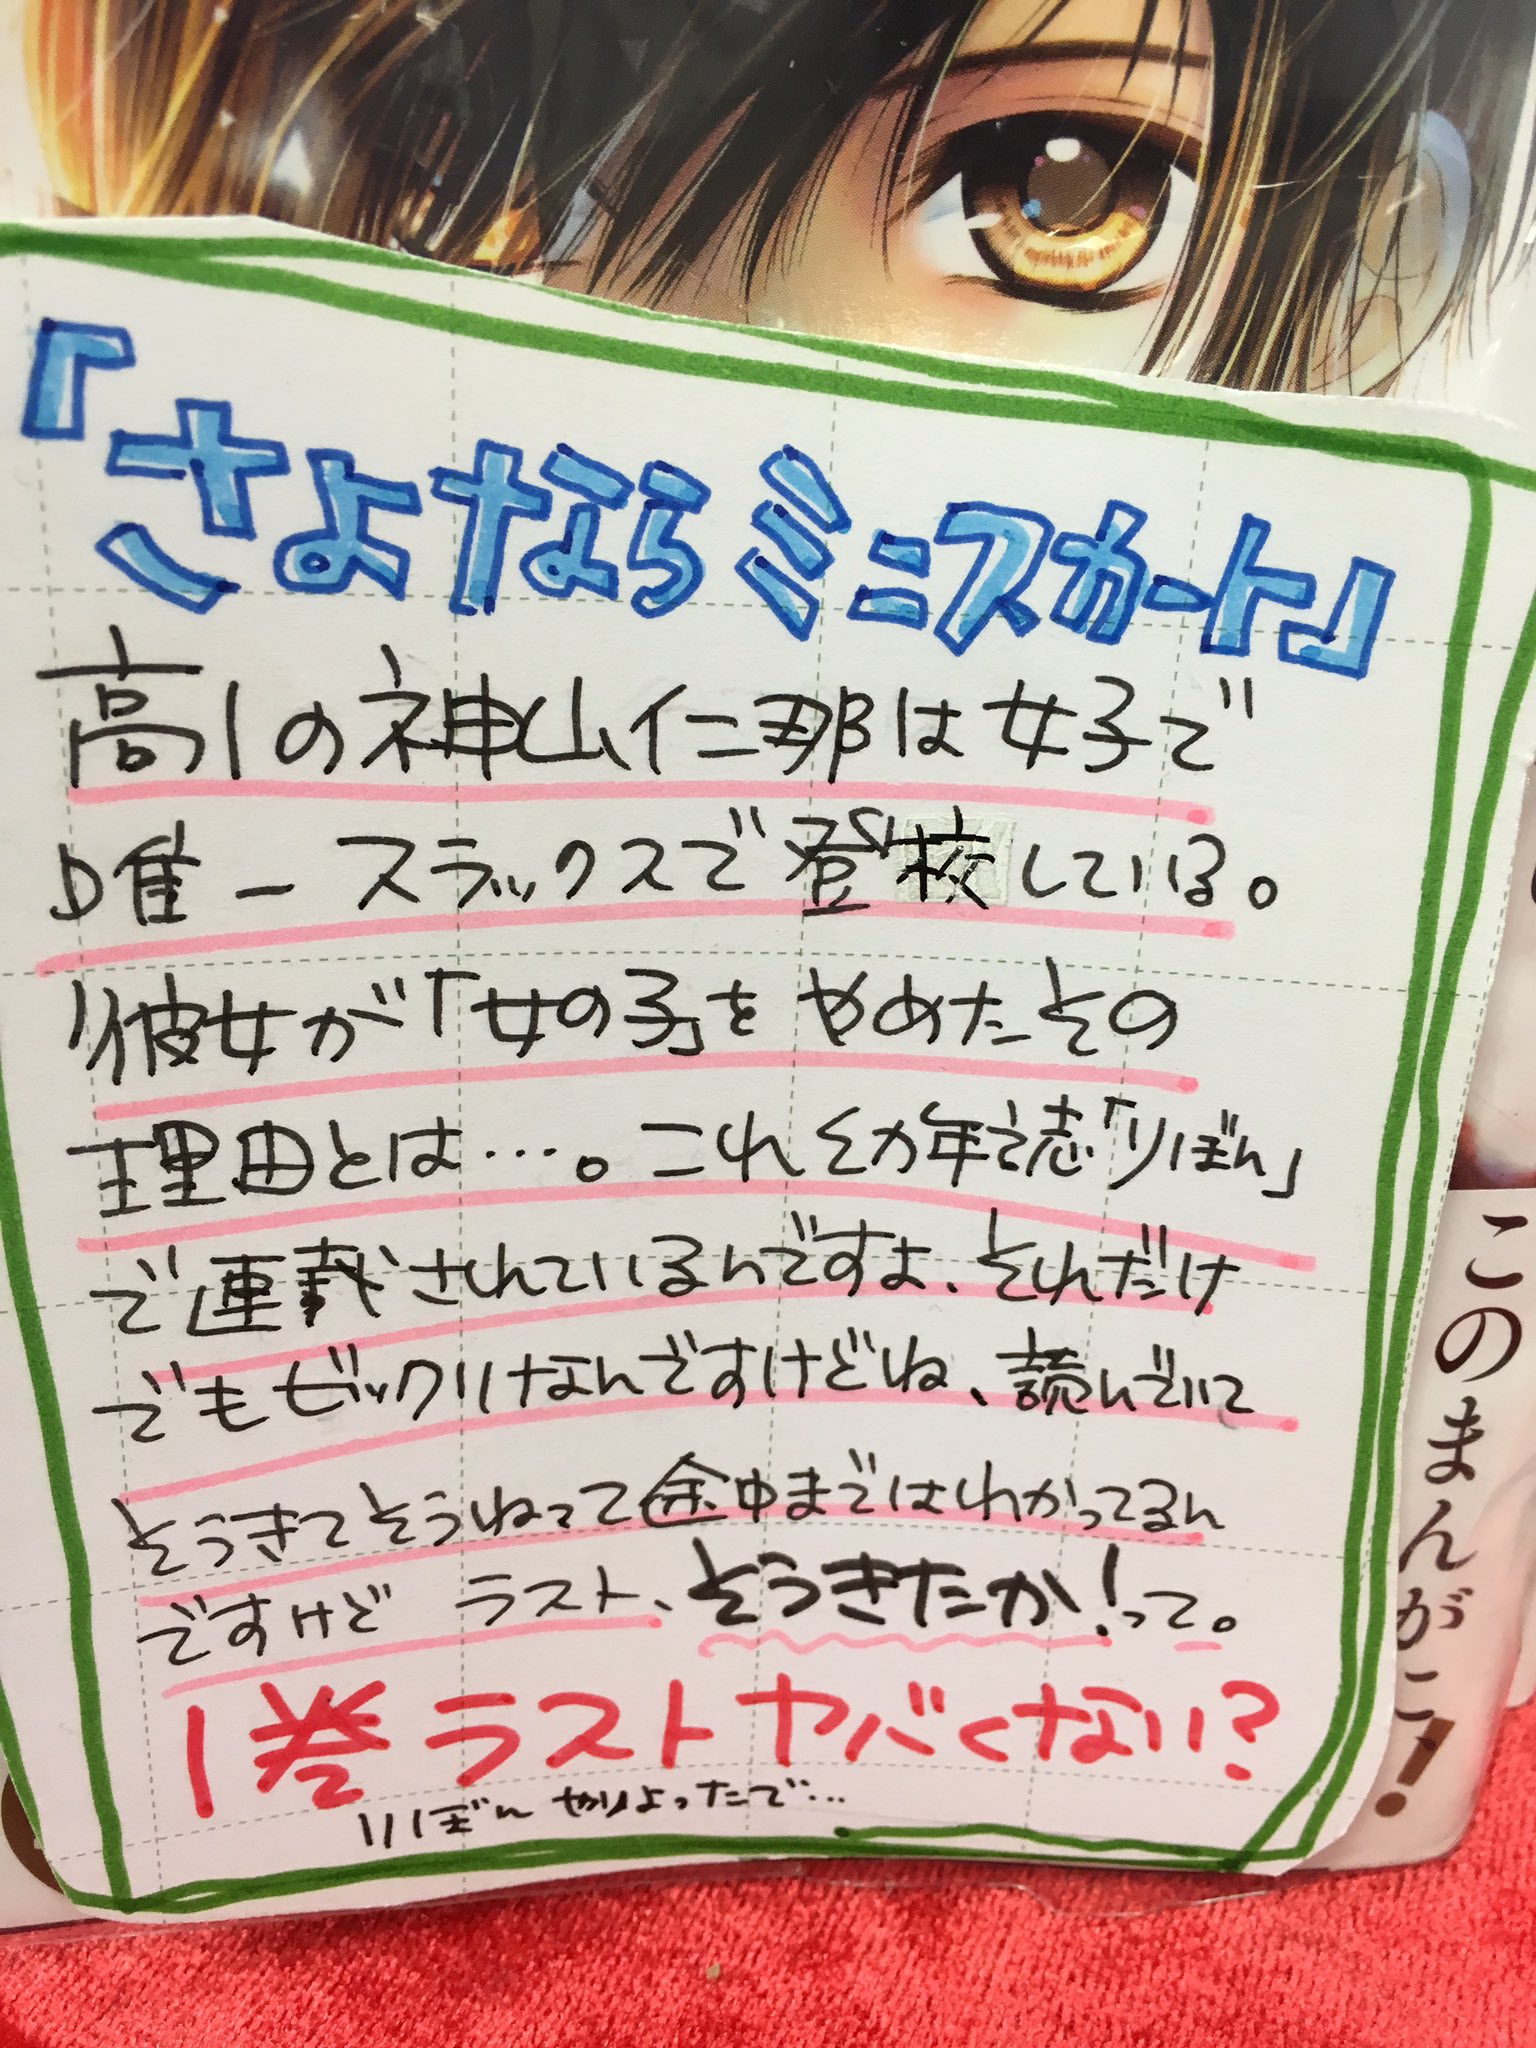 「さよならミニスカート」
高1の神山仁那は女子で
唯一スラックスで登校している。
彼女が「女の子」をやめたその
理由とは…。これ幼年誌「りぼん」
で連載されているんですよ、それだけ
でもビックリなんですけどね、読んでいて
そうきてそうねって途中まではわかってるん
ですけど ラスト、そうきたか！って。
1巻ラストヤバくない？
りぼんやりよったで…
このまんがこ!